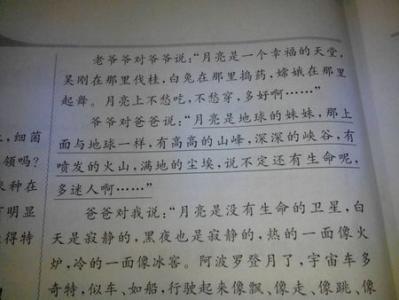 老爷爷对爷爷说：“月亮是一个幸福的天堂，
吴刚在那里伐桂，白兔在那里捣药，嫦娥在那里
起舞。月亮上不愁吃，不愁穿，多好啊……”
爷爷对爸爸说：“月亮是地球的妹妹，那上
面与地球一样，有高高的山峰，深深的峡谷，有
喷发的火山，满地的尘埃，说不定还有生命呢，
多迷人啊……”
爸爸对我说：“月亮是没有生命的卫星，白
天是寂静的，黑夜也是寂静的，热的一面像火
炉，冷的一面像冰窖。阿波罗登月了，宇宙车多
奇特，似车、如船，行驶起来像飘、像走、像跳、像
，细菌
领吗？
种在
明显
得特